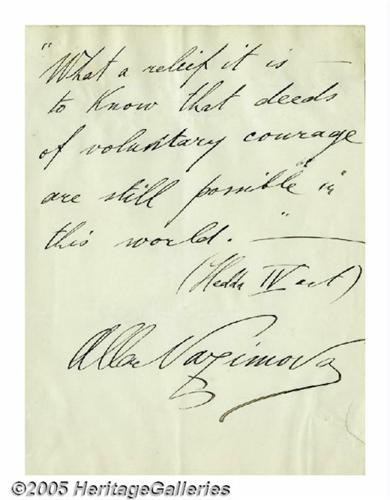 "What a relief it is —
to know that deeds
of voluntary courage
are still possible in
this world. — "
(Hedda IV act)
Alla Nazimova
©2005 HeritageGalleries